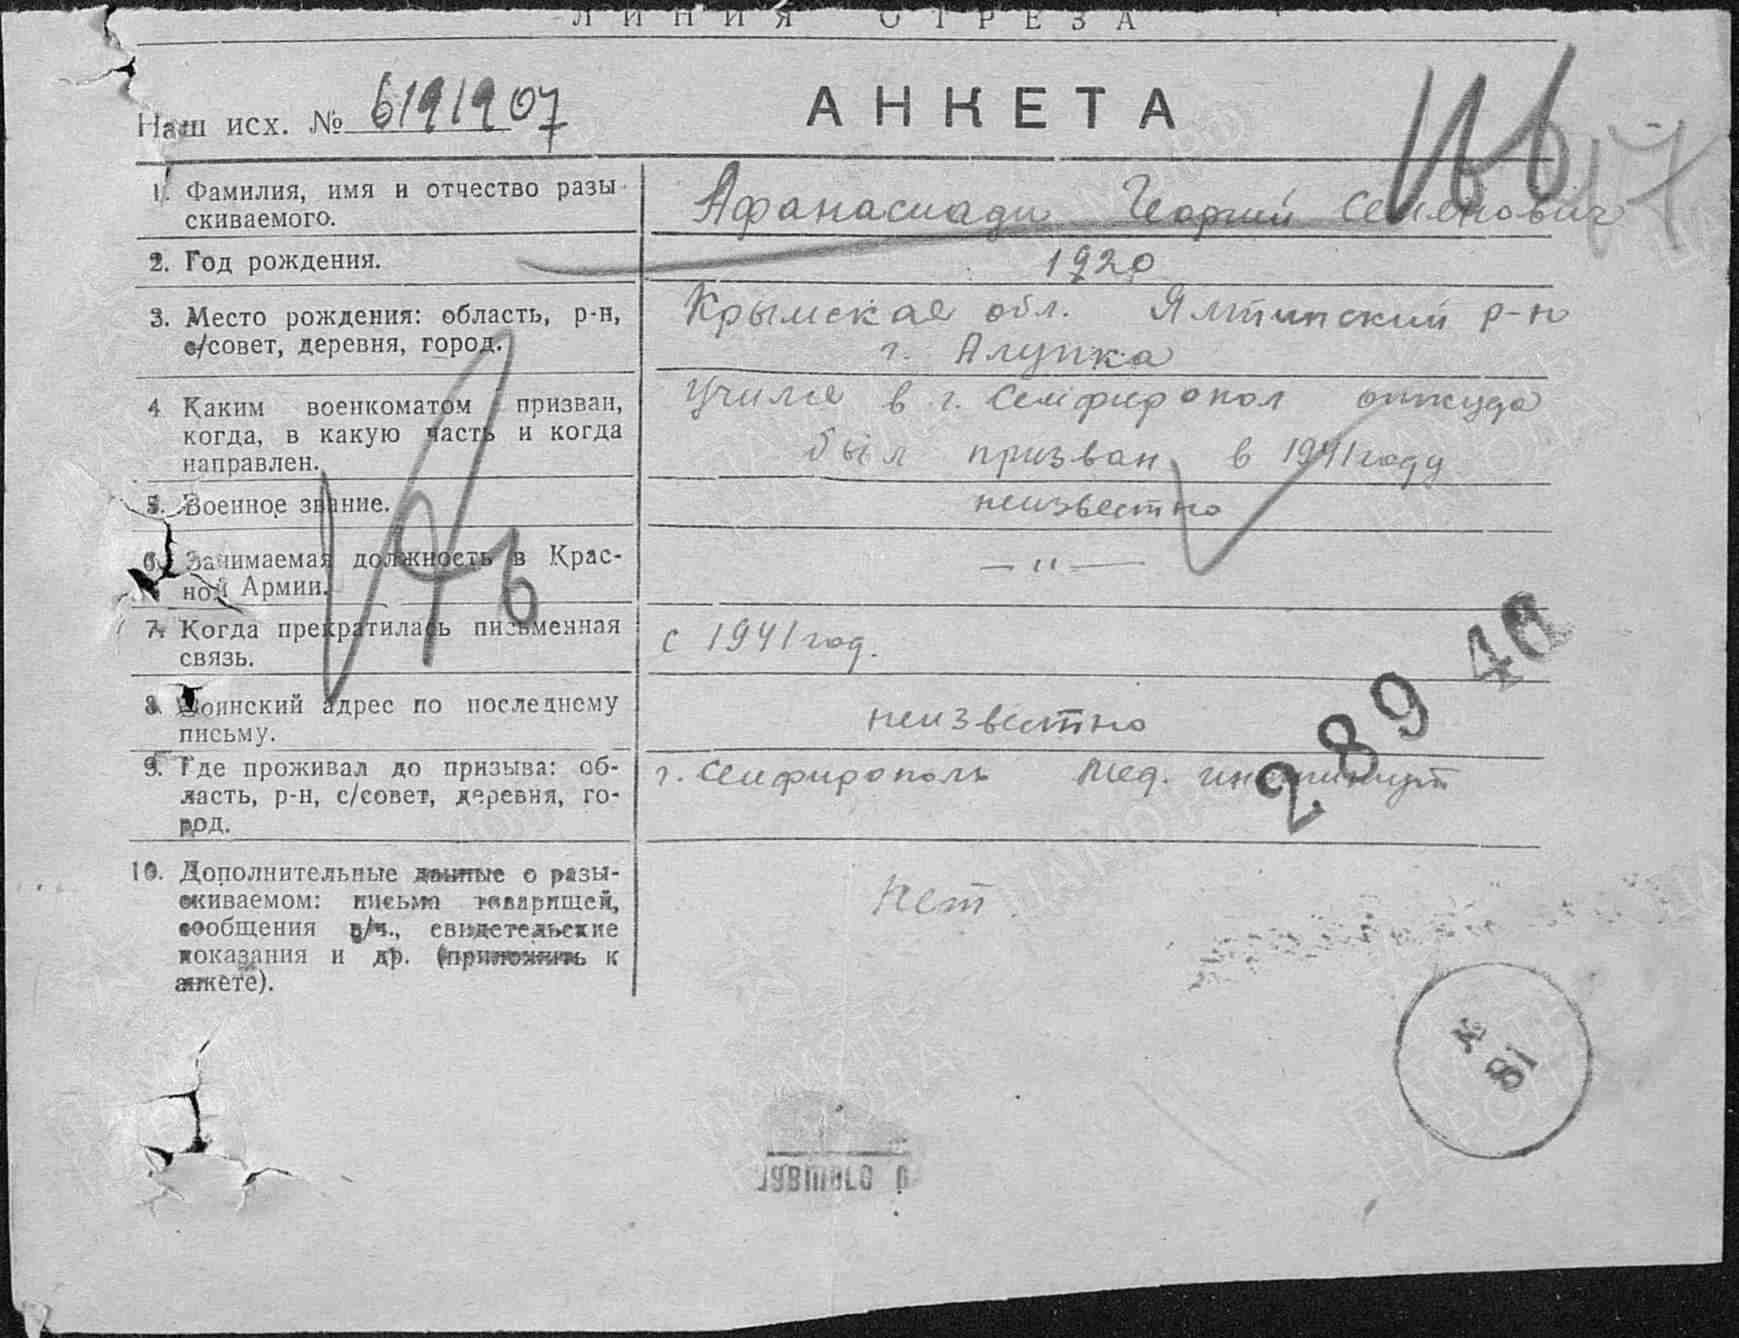 ЛИНИЯ ОТРЕЗА
Наш исх. № 6191907
АНКЕТА
1. Фамилия, имя и отчество разы
скиваемого.
Афанасиади Георгий Семенович
17
2. Год рождения.
1920
3. Место рождения: область, р-н,
с/совет, деревня, город.
Крымская обл. Ялтинский р-н
г. Алупка
4 Каким военкоматом призван,
когда, в какую часть и когда
направлен.
Учился в г. Семфиропол откуда
был призван в 1941 году
5. Военное звание.
неизвестно
6. Занимаемая должность в Крас-
ной Армии.
— " —
7. Когда прекратилась письменная
связь.
с 1941 год.
8. Воинский адрес по последнему
письму.
неизвестно
9. Где проживал до призыва: об-
ласть, р-н, с/совет, деревня, го-
род.
г. Семфирополь Мед. институт
289 40
10. Дополнительные данные о разы-
скиваемом: письма товарищей,
сообщения в/ч., свидетельские
показания и др. (приложить к
анкете).
Нет.
№
81